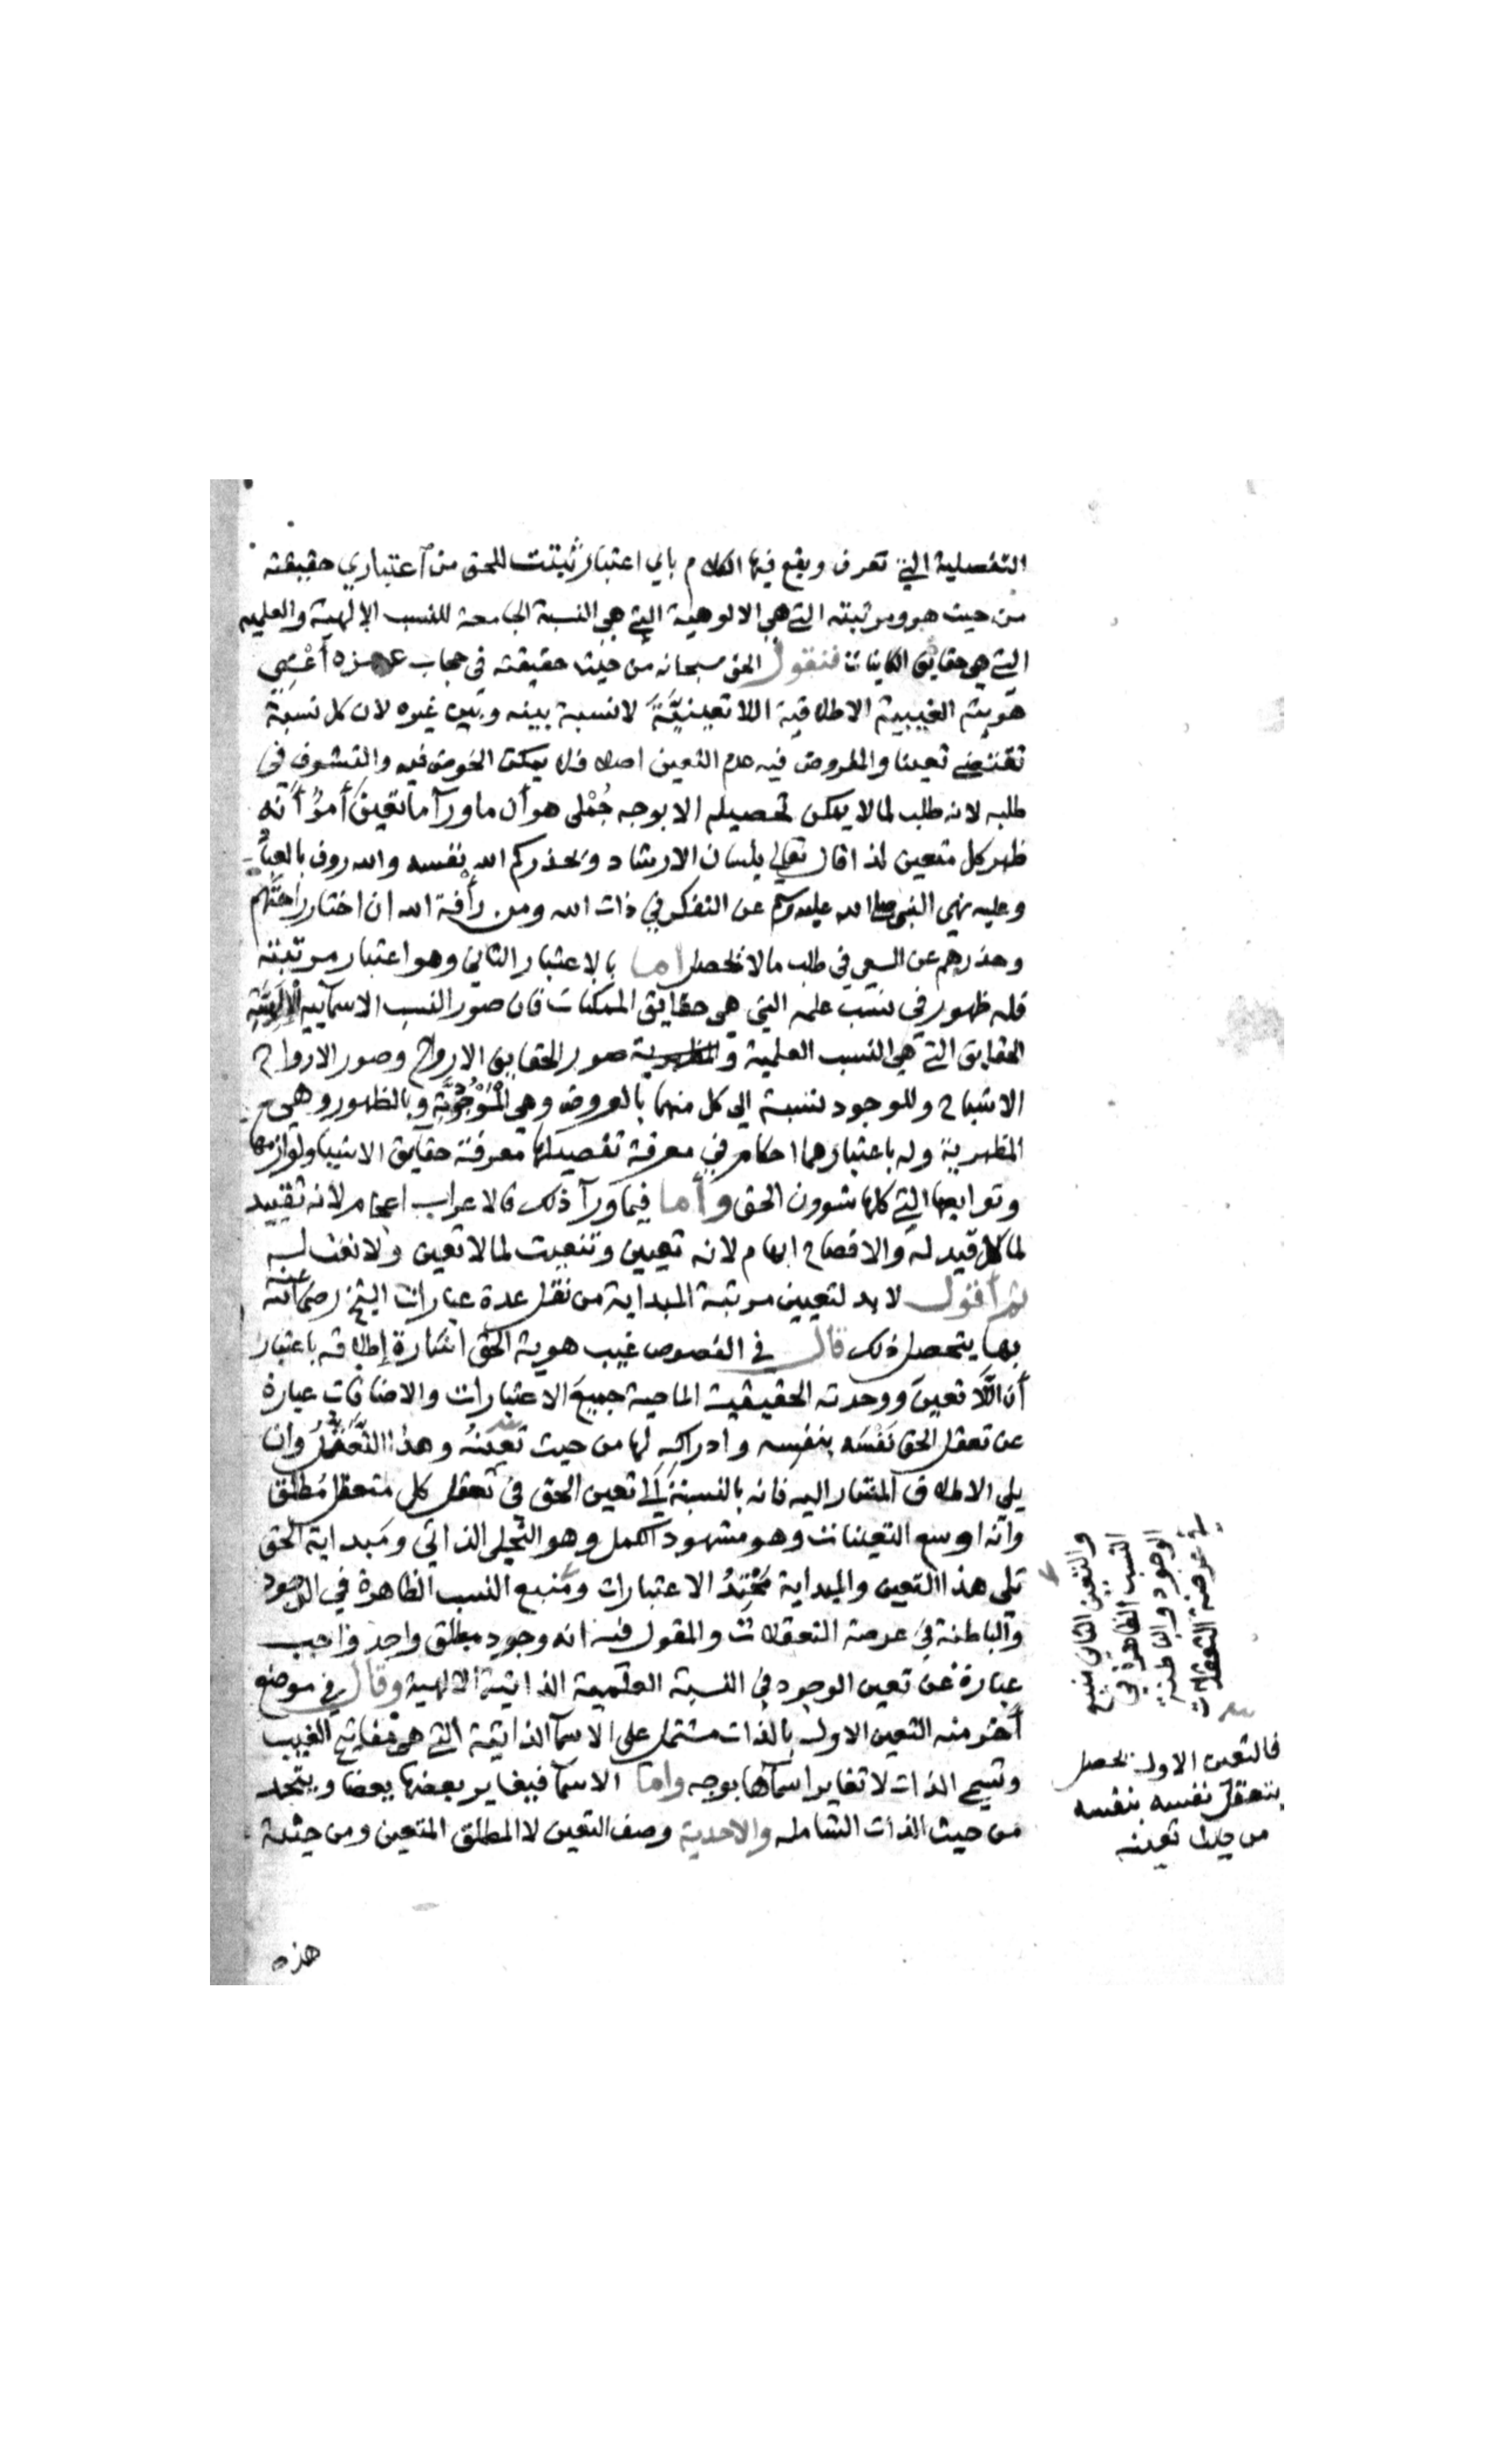 التفصلية التي تعرف ويقع فيها الكلام باي اعتبار ثبتت للحق من اعتباري حقيقته
من حيث هو ومرتبته التي هي الالوهية التي هي النسبة الجامعة للنسب الإلهية والعلمية
التي هي حقايق الكاينات فنقول الحق سبحانه من حيث حقيقته في حجاب عزه أعْنِي
هويته الغيبية الاطلاقية اللا تعينيَّةَ لا نسبة بينه وبين غيره لان كل نسبة
تقتضي تعينا والمفروض فيه عدم التعين اصلا فلا يمكن الخوض فيه والتشوف في
طلبه لانه طلب لما لا يمكن تحصيله الا بوجه جُمْلى هو أن ما ورآ ما تعين أمرٌ أنه
ظهر كل متعين لذا قال تعالى بلسان الارشاد ويحذركم الله نفسه والله روف بالعباد
وعليه نهى النبي صلى الله عليه وسلم عن التفكر في ذات الله ومن رأفة الله ان اختار راحتهم
وحذرهم عن السعي في طلب ما لا يحصل اما بالاعتبار الثاني وهو اعتبار مرتبته
فله ظهور في نسب علمه التي هي حقايق الممكنات فان صور النسب الاسمآيية الإلهيَّة
الحقايق التي هي النسب العلمية وصور الحقايق الارواح وصور الارواح
الاشباح وللوجود نسبة الى كل منهما بالعروض وهي الموجودية وبالظهور وهي
المظهرية وله باعتبارهما احكام في معرفة تفصيلها معرفة حقايق الاشيا ولوازمها
وتوابعها التي كلها شوون الحق وأما فيما ورآ ذلك فالاعراب اعجام لأنه تقييد
لما لا قيد له والافصاح ابهام لانه تعيين وتنعيت لما لا تعين ولا نعت له
ثم أقول لا بد لتعيين مرتبة المبداية من نقل عدة عبارات الشيخ رضي الله عنه
بها يتحصل ذلك قال في الفصوص غيب هوية الحق اشارة إطلاقه باعتبار
أن اللَّا تعين ووحدته الحقيقية الماحية جميعَ الاعتبارات والاضافاتِ عبارة
عن تعقل الحق نَفْسَه بنفسِه وادراكِه لها من حيث تعينهُ وهذا التَّعَقُّلُ وان
يلي الاطلاق المشار اليه فانه بالنسبة إلى تعين الحق في تعقل كل متعقل مُطلق
وانه اوسع التعينات وهو مشهود الكمل وهو التجلي الذاتي ومَبداية الحق
تلى هذا التعين والمبداية مَحْتِدُ الاعتبارات ومنبع النسب الظاهرة في الوجود
والباطنة في عرصة التعقلات والمقول فيه انه وجود مطلق واحد واجب
عبارة عن تعين الوجود في النسبة العلمية الذاتية الالهية وقال في موضع
آخر منه التعين الاول بالذات مشتمل على الاسمآ الذاتية التي هي مفاتيح الغيب
وتسمى الذات لا تغاير اسمآها بوجه واما الاسمآ فيغاير بعضها بعضا ويتحد
من حيث الذات الشامله والاحدية وصف التعين لا المطلق المتعين ومن حيثية
هذه
والتعين الثاني منبع
النسب الظاهرة في
الوجود والباطنة
في عرصة التعقلات
فالتعين الاول يحصل
بتعقل نفسه بنفسه
من حيث تعينه